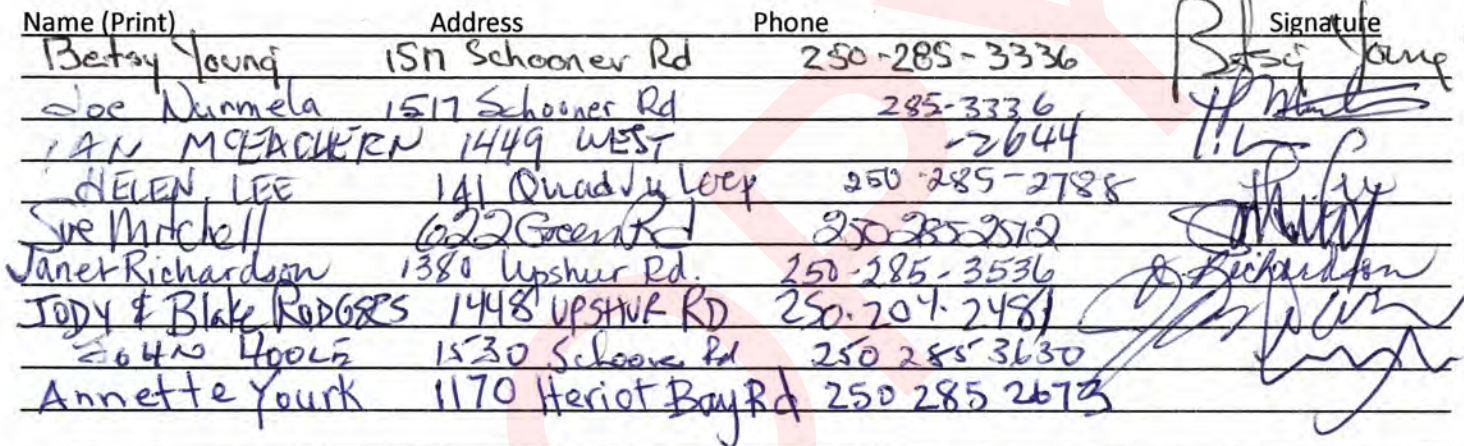 Name (Print) Address Phone Signature
Betsy Young 1517 Schooner Rd 250-285-3336 Betsy Young
Joe Nurmela 1517 Schooner Rd 285-3336
IAN MCEACHERN 1449 WEST -2644
HELEN LEE 141 Loop 250-285-2788
Sue Mitchell 622 Green Rd 250 285 2512
Janet Richardson 1380 Upshur Rd. 250-285-3536 J Richardson
JODY & Blake RODGERS 1448 UPSHUR RD 250.204.2481
JOHN HOOLE 1530 Schooner Rd 250 285 3630
Annette Yourk 1170 Heriot Bay Rd 250 285 2673